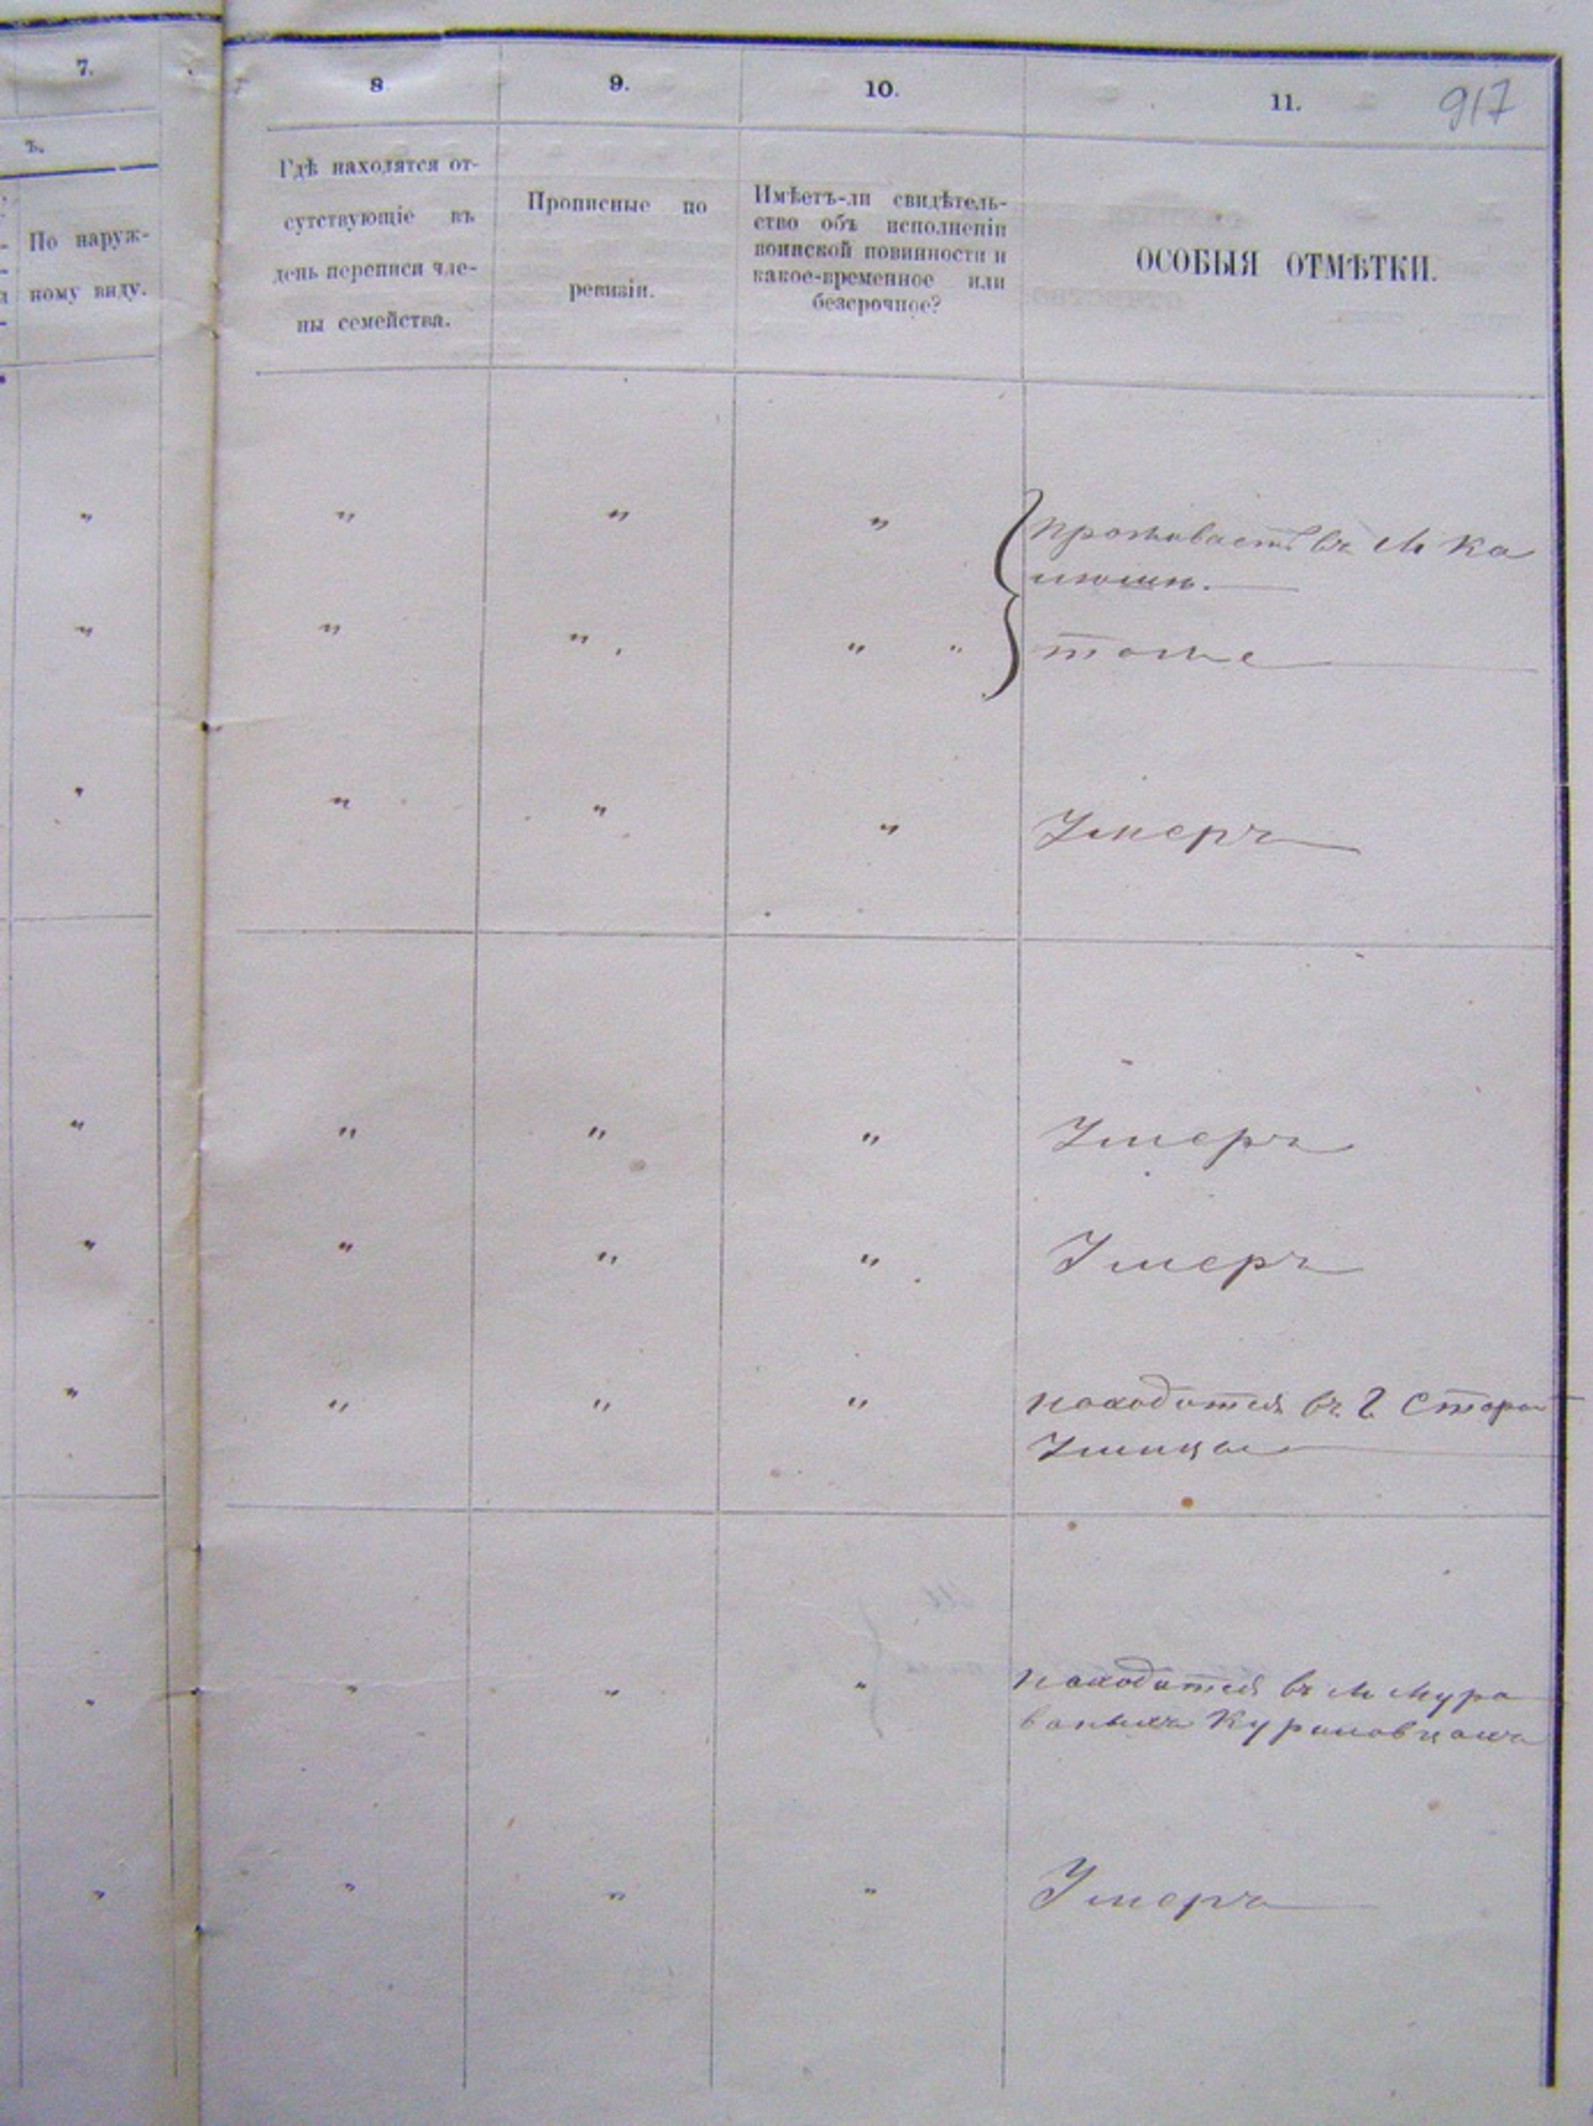 7.
8
9.
10.
11.
917
ъ.
По наруж-
ному виду.
Гдѣ находятся от-
сутствующіе въ
день переписи чле-
ны семейства.
Прописные по
ревизіи.
Имѣетъ-ли свидѣтель-
ство объ исполненіи
воинской повинности и
какое-временное или
безсрочное?
ОСОБЫЯ ОТМѢТКИ.
" " " "
проживаетъ въ М Ка
" " " " "
тоже
" " " "
Умеръ
" " " "
Умеръ
" " " "
Умеръ
" " " "
находится въ г. Старой
Ушицы
" " " "
находится въ М Мура
ваныхъ Куриловцахъ
" " " "
Умеръ